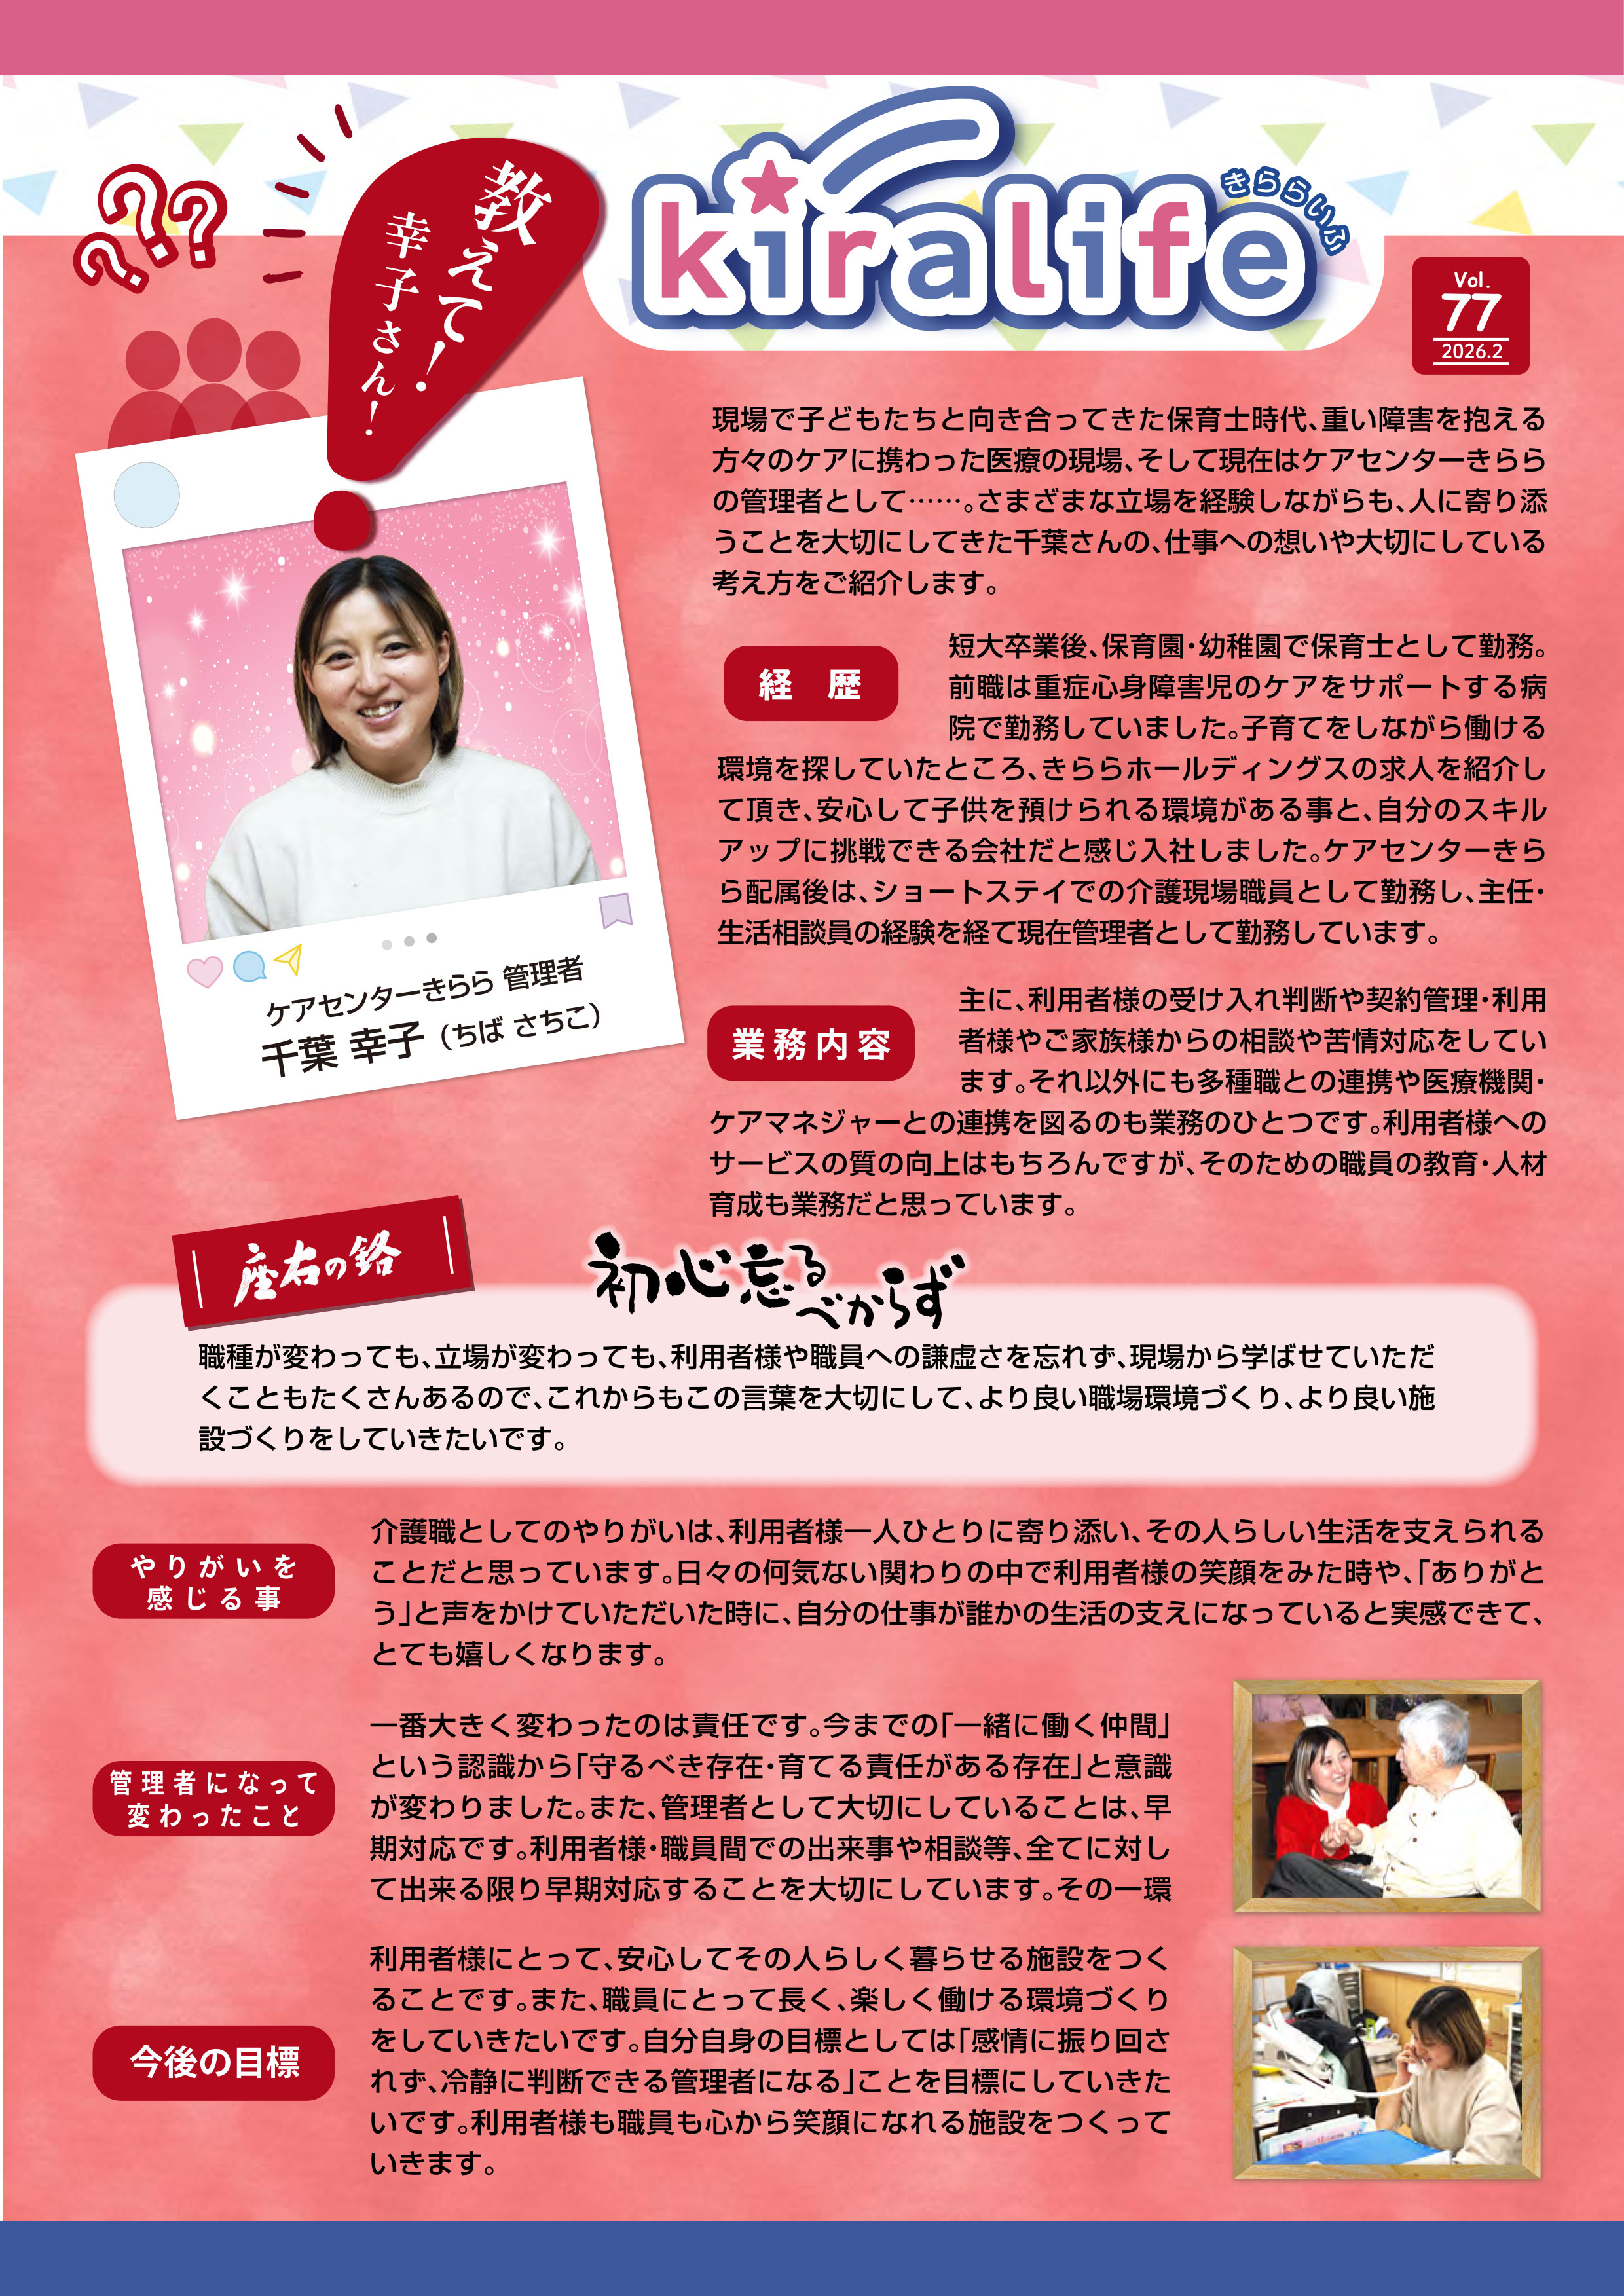 ???
教えて!
幸子さん!
kiralife
きららいふ
Vol.
77
2026.2
現場で子どもたちと向き合ってきた保育士時代、重い障害を抱える
方々のケアに携わった医療の現場、そして現在はケアセンターきらら
の管理者として……。さまざまな立場を経験しながらも、人に寄り添
うことを大切にしてきた千葉さんの、仕事への想いや大切にしている
考え方をご紹介します。
ケアセンターきらら 管理者
千葉 幸子（ちば さちこ）
経 歴
短大卒業後、保育園・幼稚園で保育士として勤務。
前職は重症心身障害児のケアをサポートする病
院で勤務していました。子育てをしながら働ける
環境を探していたところ、きららホールディングスの求人を紹介し
て頂き、安心して子供を預けられる環境がある事と、自分のスキル
アップに挑戦できる会社だと感じ入社しました。ケアセンターきら
ら配属後は、ショートステイでの介護現場職員として勤務し、主任・
生活相談員の経験を経て現在管理者として勤務しています。
業務内容
主に、利用者様の受け入れ判断や契約管理・利用
者様やご家族様からの相談や苦情対応をしてい
ます。それ以外にも多種職との連携や医療機関・
ケアマネジャーとの連携を図るのも業務のひとつです。利用者様への
サービスの質の向上はもちろんですが、そのための職員の教育・人材
育成も業務だと思っています。
座右の銘
初心忘る
べからず
職種が変わっても、立場が変わっても、利用者様や職員への謙虚さを忘れず、現場から学ばせていただ
くこともたくさんあるので、これからもこの言葉を大切にして、より良い職場環境づくり、より良い施
設づくりをしていきたいです。
やりがいを
感じる事
介護職としてのやりがいは、利用者様一人ひとりに寄り添い、その人らしい生活を支えられる
ことだと思っています。日々の何気ない関わりの中で利用者様の笑顔をみた時や、「ありがと
う」と声をかけていただいた時に、自分の仕事が誰かの生活の支えになっていると実感できて、
とても嬉しくなります。
管理者になって
変わったこと
一番大きく変わったのは責任です。今までの「一緒に働く仲間」
という認識から「守るべき存在・育てる責任がある存在」と意識
が変わりました。また、管理者として大切にしていることは、早
期対応です。利用者様・職員間での出来事や相談等、全てに対し
て出来る限り早期対応することを大切にしています。その一環
今後の目標
利用者様にとって、安心してその人らしく暮らせる施設をつく
ることです。また、職員にとって長く、楽しく働ける環境づくり
をしていきたいです。自分自身の目標としては「感情に振り回さ
れず、冷静に判断できる管理者になる」ことを目標にしていきた
いです。利用者様も職員も心から笑顔になれる施設をつくって
いきます。